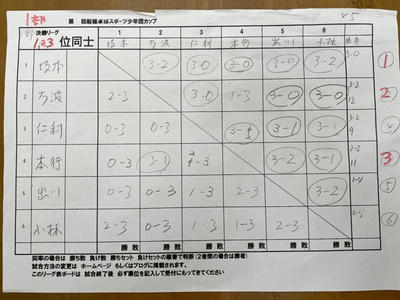 1部
第 回船橋卓球スポーツ少年団カップ
部 決勝リーグ
1,2,3 位同士
1 2 3 4 5 6
坂本 万波 仁科 本行 出川 小林
1 坂本 3-2 3-0 3-0 3-0 3-2 5-0 ①
2 万波 2-3 3-0 1-3 3-0 3-0 3-2 12 ②
3 仁科 0-3 0-3 3-1 3-1 3-2 9 ④
4 本行 0-3 3-1 1-3 3-2 3-1 11 3
5 出川 0-3 0-3 1-3 2-3 3-2 1-4 ⑤
6 小林 2-3 0-3 1-3 1-3 2-3 0-5 ⑥
勝 敗 勝 敗 勝 敗 勝 敗 勝 敗 勝 敗
同率の場合は 勝ち数 負け数 勝ちセット 負けセットの順番で判断(2者間の場合は勝者)
試合方法の変更は ホームページ もしくはブログに掲載します。
このリーグ表ボードは 試合終了後 必ず順位を記入して受付にもってきてください